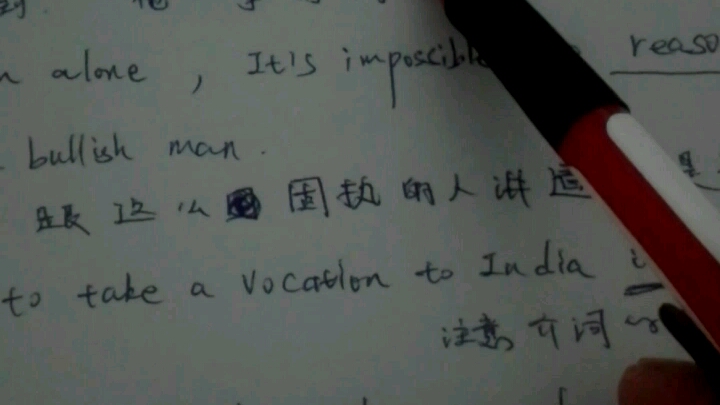 alone , It's imposcible reaso
bullish man .
跟这么固执的人讲道
to take a vocation to India
注意介词